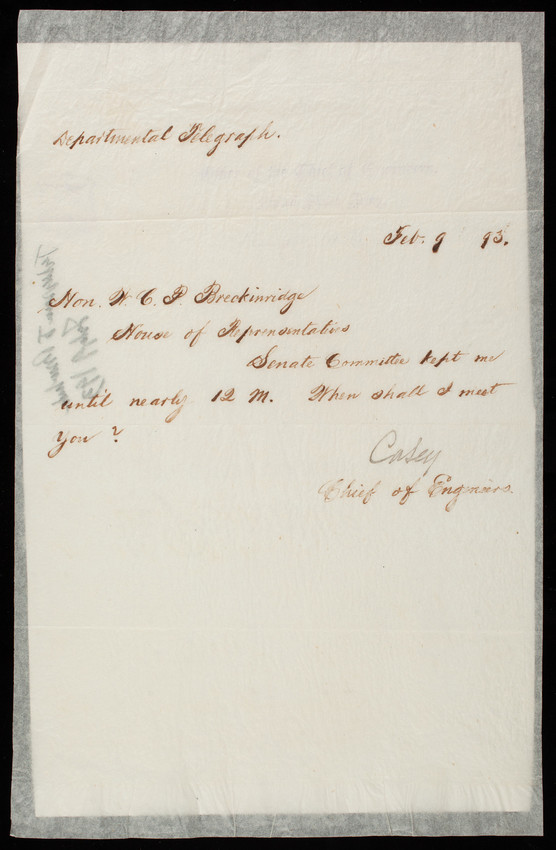 Departmental Telegraph.
Feb. 9 93.
Hon. W. C. P. Breckinridge
House of Reprensentatives
Senate Committee kept me
until nearly 12 M. When shall I meet
you?
Casey
Chief of Engineers.